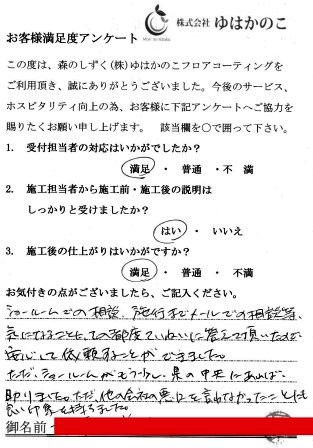 株式会社 ゆはかのこ
お客様満足度アンケート
この度は、森のしずく(株)ゆはかのこフロアコーティングを
ご利用頂き、誠にありがとうございました。今後のサービス、
ホスピタリティ向上の為、お客様に下記アンケートへご協力を
賜りたくお願い申し上げます。 該当欄を○で囲って下さい。
1. 受付担当者の対応はいかがでしたか?
満足 ・ 普通 ・不 満
2. 施工担当者から施工前・施工後の説明は
しっかりと受けましたか?
はい ・ いいえ
3. 施工後の仕上がりはいかがですか?
満足 ・ 普通 ・ 不満
お気付きの点がございましたら、ご記入ください。
ショールームでの相談、施行までメールでの相談等、
気になることに、その都度ていねいに答えて頂いたので
安心して依頼することができました。
ただ、ショールームがもう少し、県の中央にあれば、
助かりました。ただ、他の会社の悪口を言わなかったことにも
良い印象を持ちました。
御名前